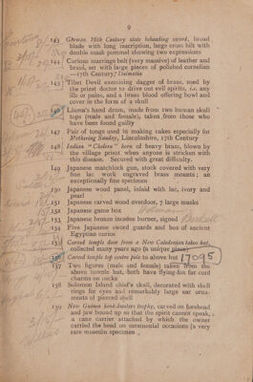 9
143 German 16th Century state beheading sword, broad
blade with long inscription, large cross hilt with
double snash pommel showing two expressions
144 Curious marriage belt (very massive) of leather and
brass, set with large pieces of polished cornelian
—17th Century? Dalmatia
145 Tibet Devil exorcising dagger of brass, used by
the priest doctor to drive out evil spirits, i.e. any
ills or pains, and a brass blood offering bowl and
cover in the form of a skull
146 Llama's hand drum, made from two human skull
tops (male and female), taken from those who
have been found guilty
147 Pair of tongs used in making cakes especially for
Mothering Sunday, Lincolnshire, 17th Century
148 Indian "Cholera" horn of heavy brass, blown by
the village priest when anyone is stricken with
this disease. Secured with great difficulty.
149 Japanese matchlock gun, stock covered with very
fine lac work engraved brass mounts; an
exceptionally fine specimen
150 Japanese wood panel, inlaid with lac, ivory and
pearl
151 Japanese carved wood overdoor, 7 large masks
152 Japanese game box
153 Japanese bronze incense burner, signed
154 Five Japanese sword guards and box of ancient
Egyptian curios
155 Carved temple door from a New Caledonian taboo hut,
collected many years ago (a unique piece)
156 Carved temple top centre pole to above hut 17095
157 Two figures (male and female) taken from the
above temple hut, both have flying-fox fur cord
charms on necks
158 Solomon Island chief's skull, decorated with shell
rings for eyes and remarkably large ear orna-
ments of pierced shell
159 New Guinea head-hunters trophy, carved on forehead
and jaw bound up so that the spirit cannot speak,
a cane carrier attached by which the owner
carried the head on ceremonial occasions (a very
rare museum specimen